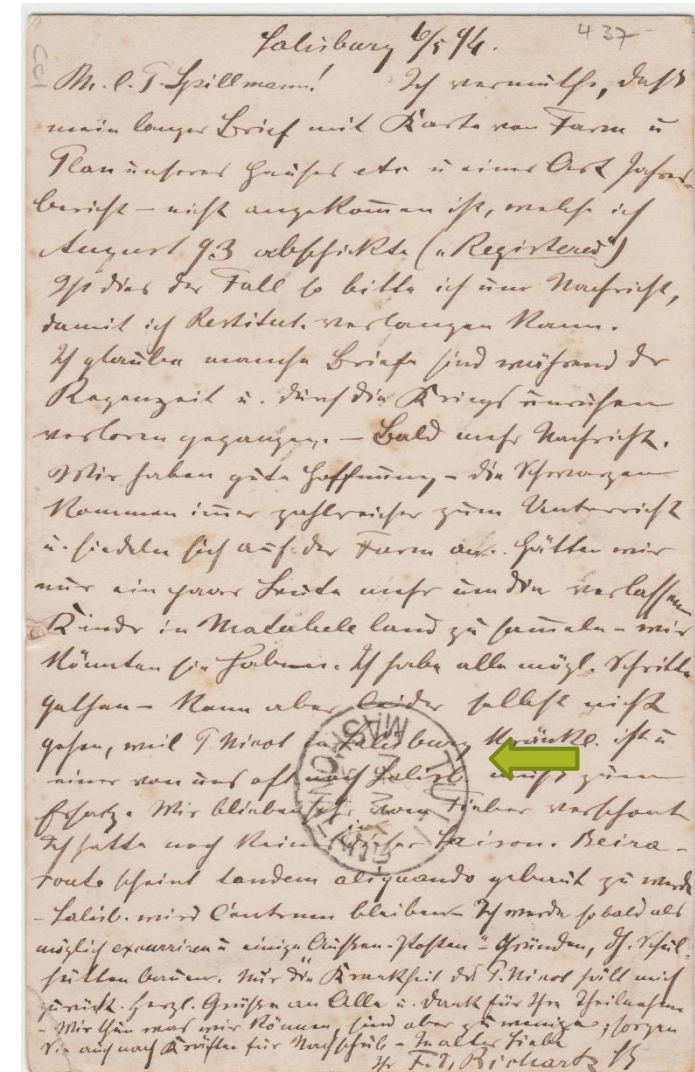 Salisbury 6/5 94.
437
M. l. P. Spillmann! Ich vermuthe, daß
mein langer Brief mit Karte von Farm u
Plan unseres Hauses etc u einer Art Jahres-
bericht – nicht angekommen ist, welche ich
August 93 abschickte („Registered")
Ist dies der Fall so bitte ich um Nachricht,
damit ich Restitut. verlangen kann.
Ich glaube manche Briefe sind während der
Regenzeit u. durch die Kriegsunruhen
verloren gegangen. – Bald mehr Nachricht.
Wir haben gute Hoffnung – die Schwarzen
kommen immer zahlreicher zum Unterricht
u. siedeln sich auf der Farm an. Hätten wir
nur ein paar Leute mehr um die verlassenen
Kinder in Matabeleland zu sammeln – wir
könnten sie haben. Ich habe alle mögl. Schritte
gethan – kann aber leider selbst nicht
gehen, weil P. Nicot in Salisbury kränkl. ist u
einer von uns oft nach Salisb. muß zum
Ersatz. Wir blieben vom Fieber verschont
Ich hatte noch keines dieser Saison. Beira-
route scheint tandem aliquando gebaut zu werden
– Salisb. wird Centrum bleiben – Ich werde sobald als
möglich excurriren u einige Außen-Posten gründen, dh. Schul-
hütten bauen. Nur die Krankheit des P. Nicot hält mich
zurück. Herzl. Grüße an Alle u. Dank für Ihre Theilnahme
– Wir thun was wir können, sind aber zu wenige, sorgen
Sie auch nach Kräften für Nachschub – In alter Liebe
Ihr Fr. Richartz SJ
TULI